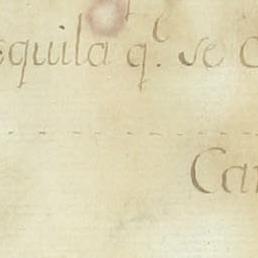 equila q.e se
Car